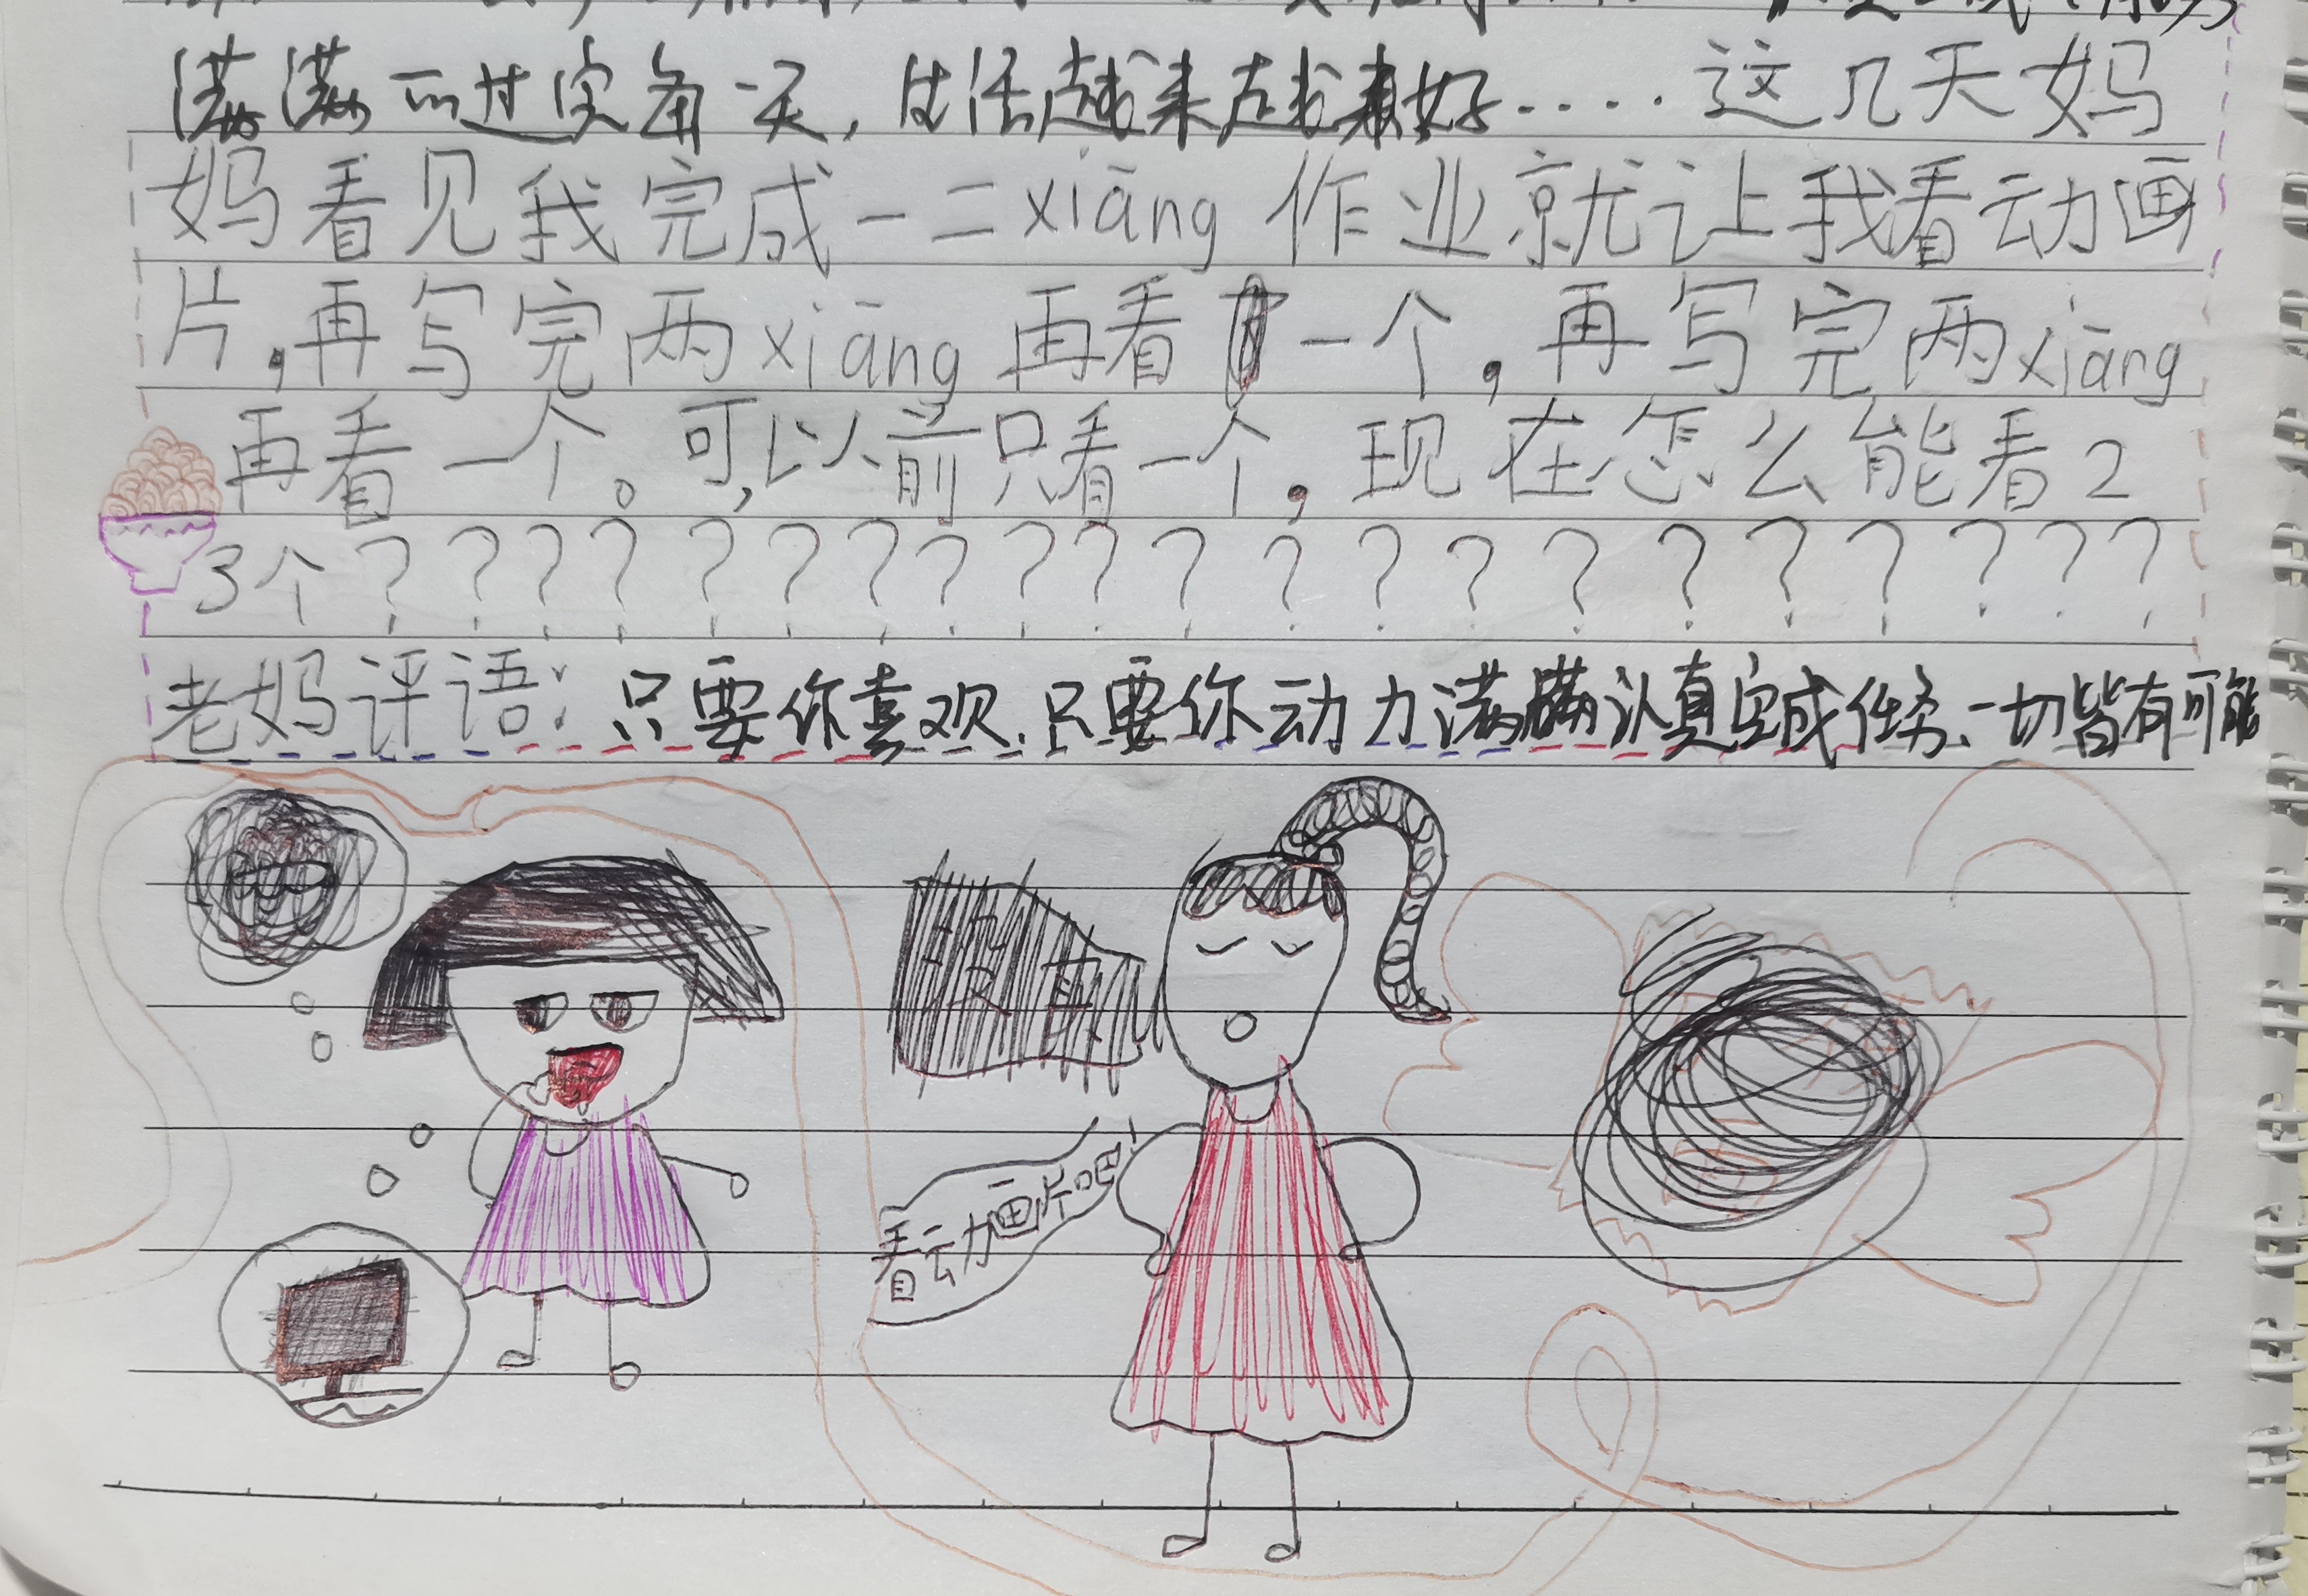 满满而过实每一天，生活越来越来好．．．．．这几天妈
妈看见我完成一二xiāng作业就让我看动画
片，再写完两xiāng再看一个，再写完两xiāng
再看一个。可，以前只看一个，现在怎么能看2
3个？？？？？？？？？？？？？？？？？？？？？
老妈评语：只要你喜欢，只要你动力满满认真完成任务、一切皆有可能
看动画片吧！